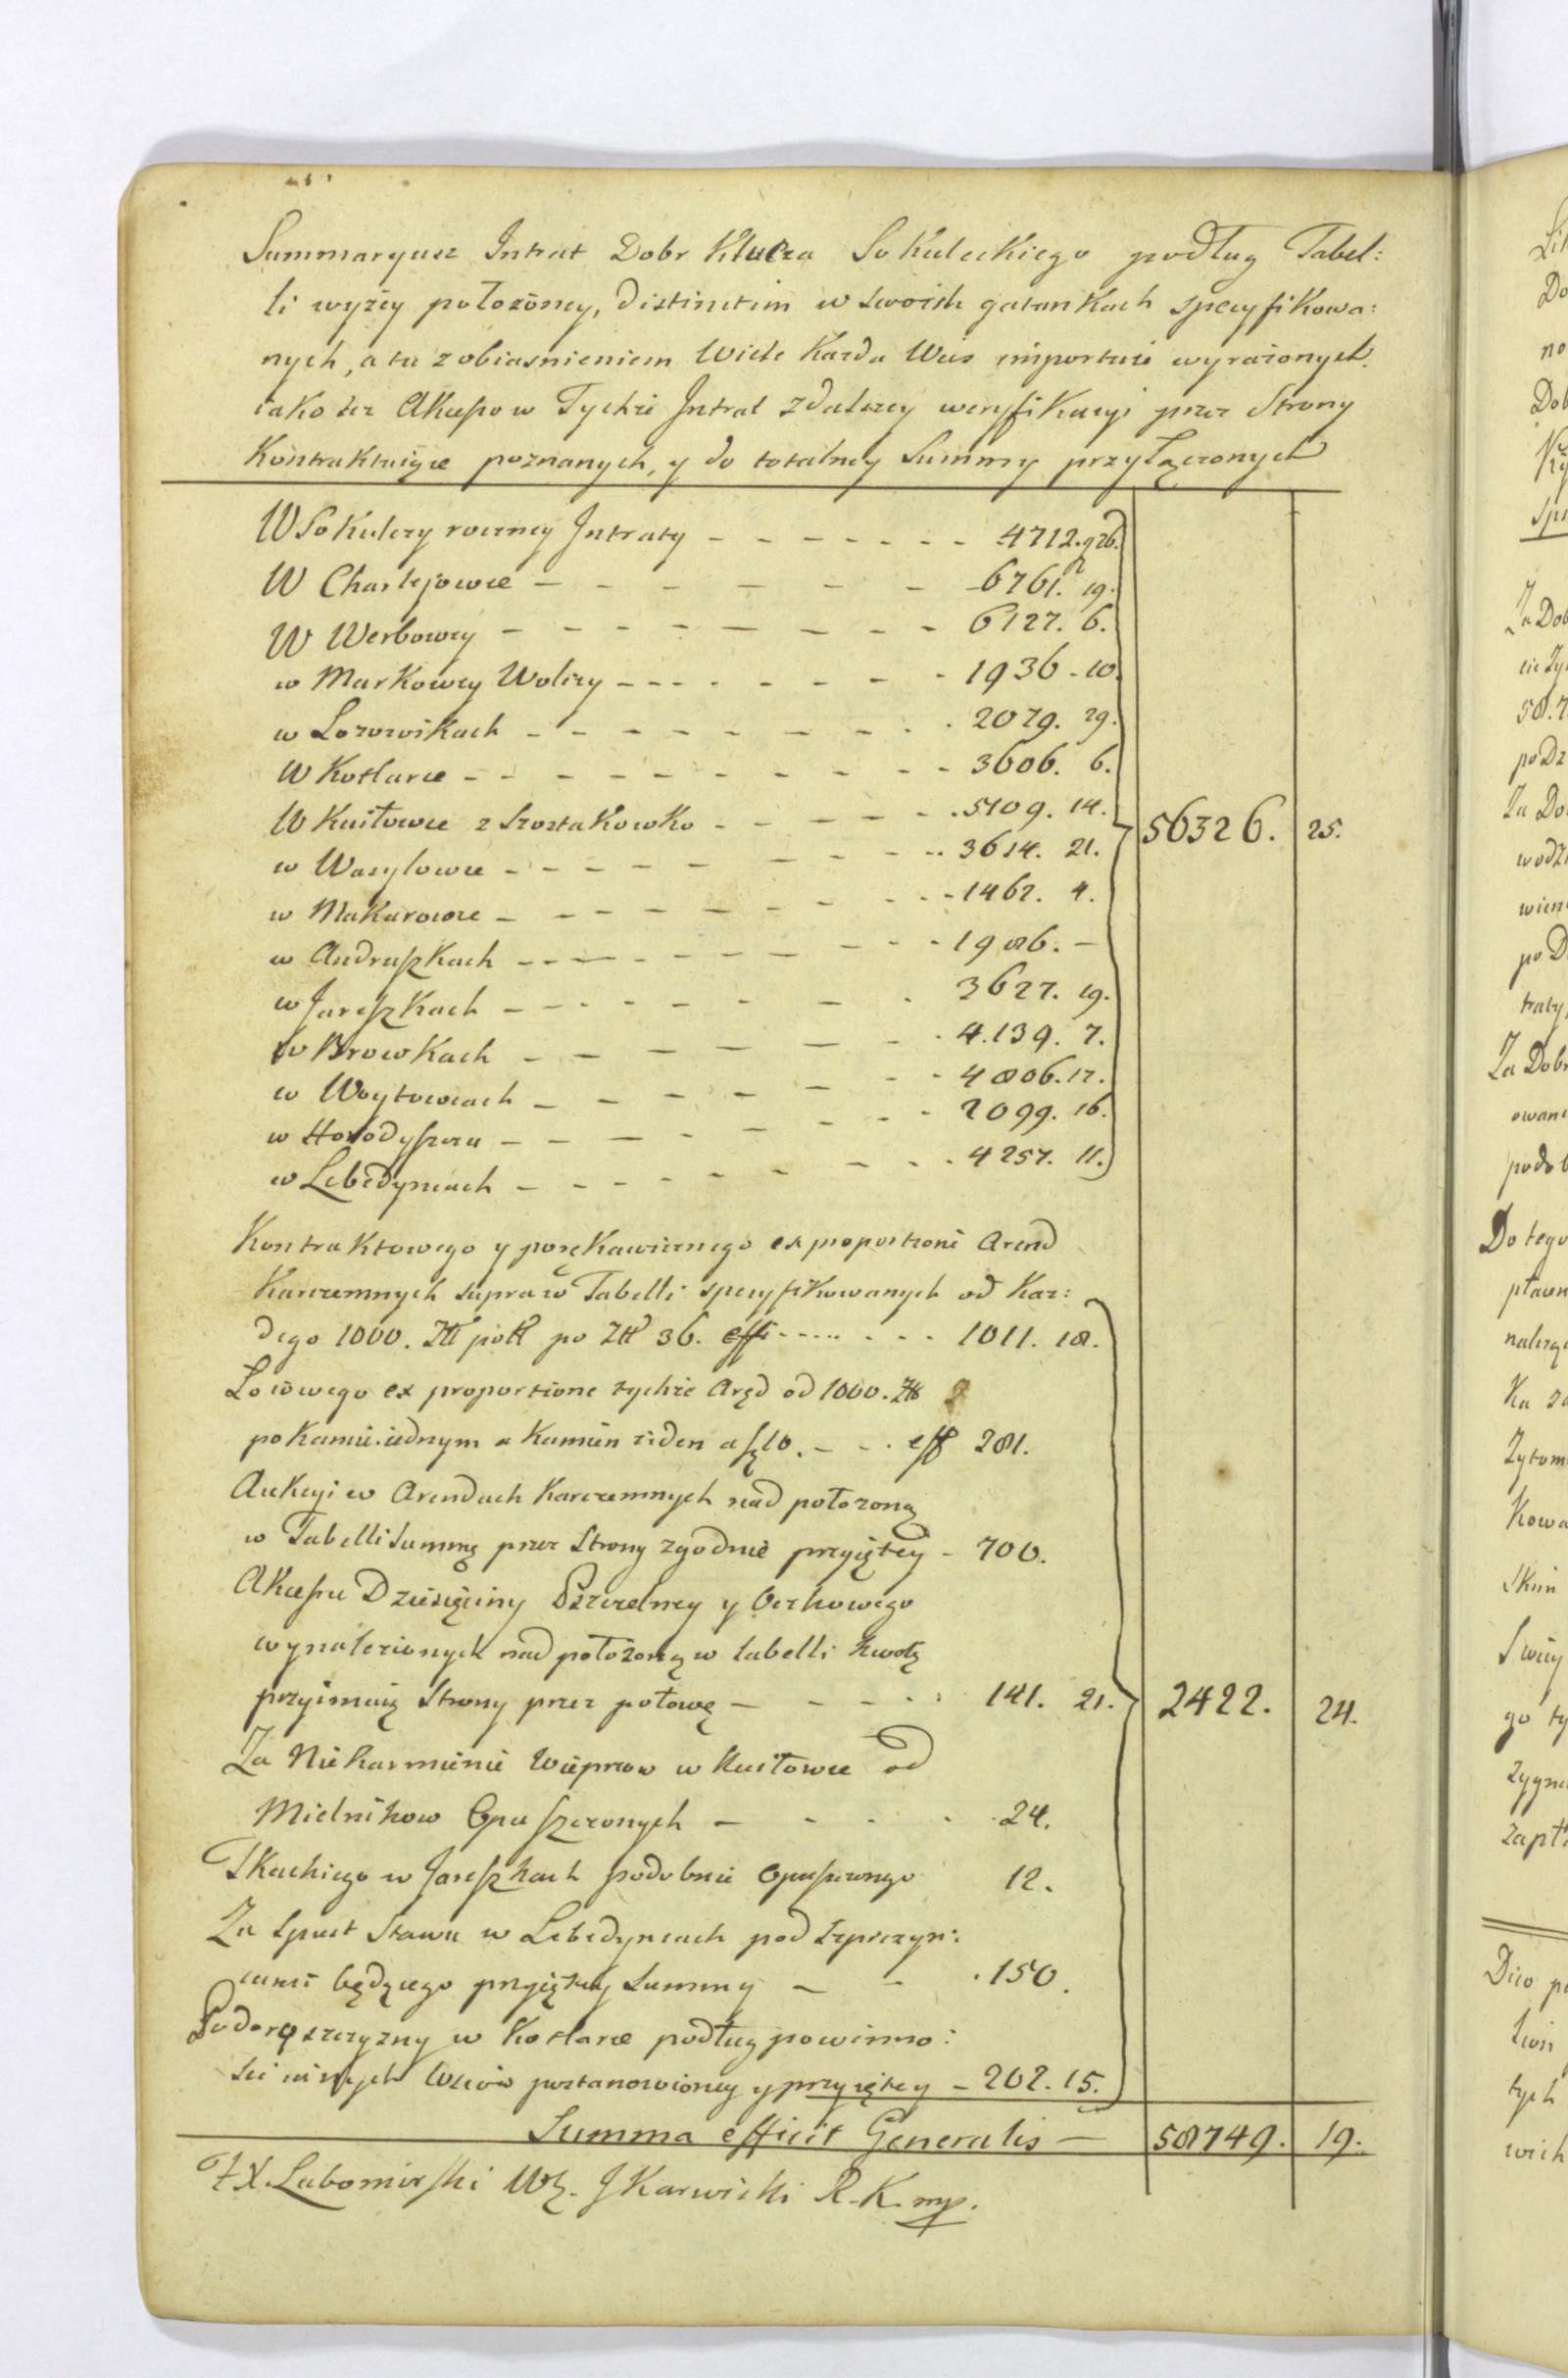 Summaryusz Intrat Dobr Klucza Sokuleckiego podług Tabel:
li wyżey położoney, distinctim w swoich gatunkach specyfikowa:
nych, a tu z obiasnieniem Wiele Kazda Wies importuie wyrażonych.
iako też Akcessow Tychże Intrat z dalszey weryfikacyi przez Strony
Kontraktuiące poznanych, y do totalney Summy przyłączonych
W Sokulczy roczney Intraty - - - - - - - 4712. g 26.
W Charlejowce - - - - - - 6761. 19.
W Werbowcy - - - - - - - - 6127. 6.
w Markowey Wolicy - - - - - - - 1936 - 10.
w Lozowikach - - - - - - - - 2079. 29.
W Kotlarce - - - - - - - - - 3606. 6.
W Kusłowce z Szostakowko - - - - - 5109. 14.
w Wasylowce - - - - - - - - 3614. 21.
w Makarowce - - - - - - - - 1462. 4.
w Andruszkach - - - - - - - - 1986. -
w Jareszkach - - - - - - 3627. 19.
w Browkach - - - - - - 4.139. 7.
w Woytowcach - - - - - - 4806. 17.
w Horodyszczu - - - - - - - 2099. 16.
w Lebedyncach - - - - - - - 4257. 11.
56326. 25.
Kontraktowego y porękawicznego ex proportione Arend
Karczemnych supra w Tabelli specyfikowanych od Kaz:
dego 1000. Złł poll po Złł 36. effi - - - - 1011. 18.
Łoiowego ex proportione tychże Aręd od 1000. Złł
po Kamie. iednym a Kamien ieden a 10. - - - eff 281.
Aukcyi w Arendach Karczemnych nad położoną
w Tabelli Summę przez Strony zgodnie przyiętey - 700.
Akcessu Dziesięciny Pszczelney y Oczkowego
wynalezionych nad położoną w tabelli kwotę
przyimuią Strony przez połowę - - - - 141. 21.
2422. 24.
Za Niekarmienie Wieprzow w Kusłowce od
Mielnikow Opuszczonych - - - - 24.
Tkackiego w Jareszkach podobnie Opuszczonego 12.
Za Spust Stawu w Lebedyncach pod
będącego przyiętey Summy - - 150.
Podoroszczyzny w Kotlarce podług powinno:
sci innych Wsiow postanowioney y przyiętey - 202. 15.
Summa efficit Generalis - 58749. 19.
F X. Lubomirski JKarwicki R. K. mp.